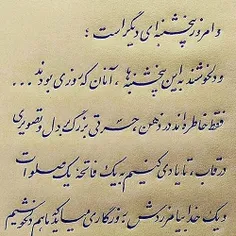 و امروز پنجشنبه‌ای دیگر است ؛
و دلخوشند به این پنجشنبه‌ها ، آنان که روزی بودند ...
فقط خاطره‌اند در ذهن ، حسرتی بزرگ بدل و تصویری
در قاب ، تا یادی کنیم به یک فاتحه یک صلوات
و یک خدا بیامرزدش روزگاری میآید ما هم دلخوشیم